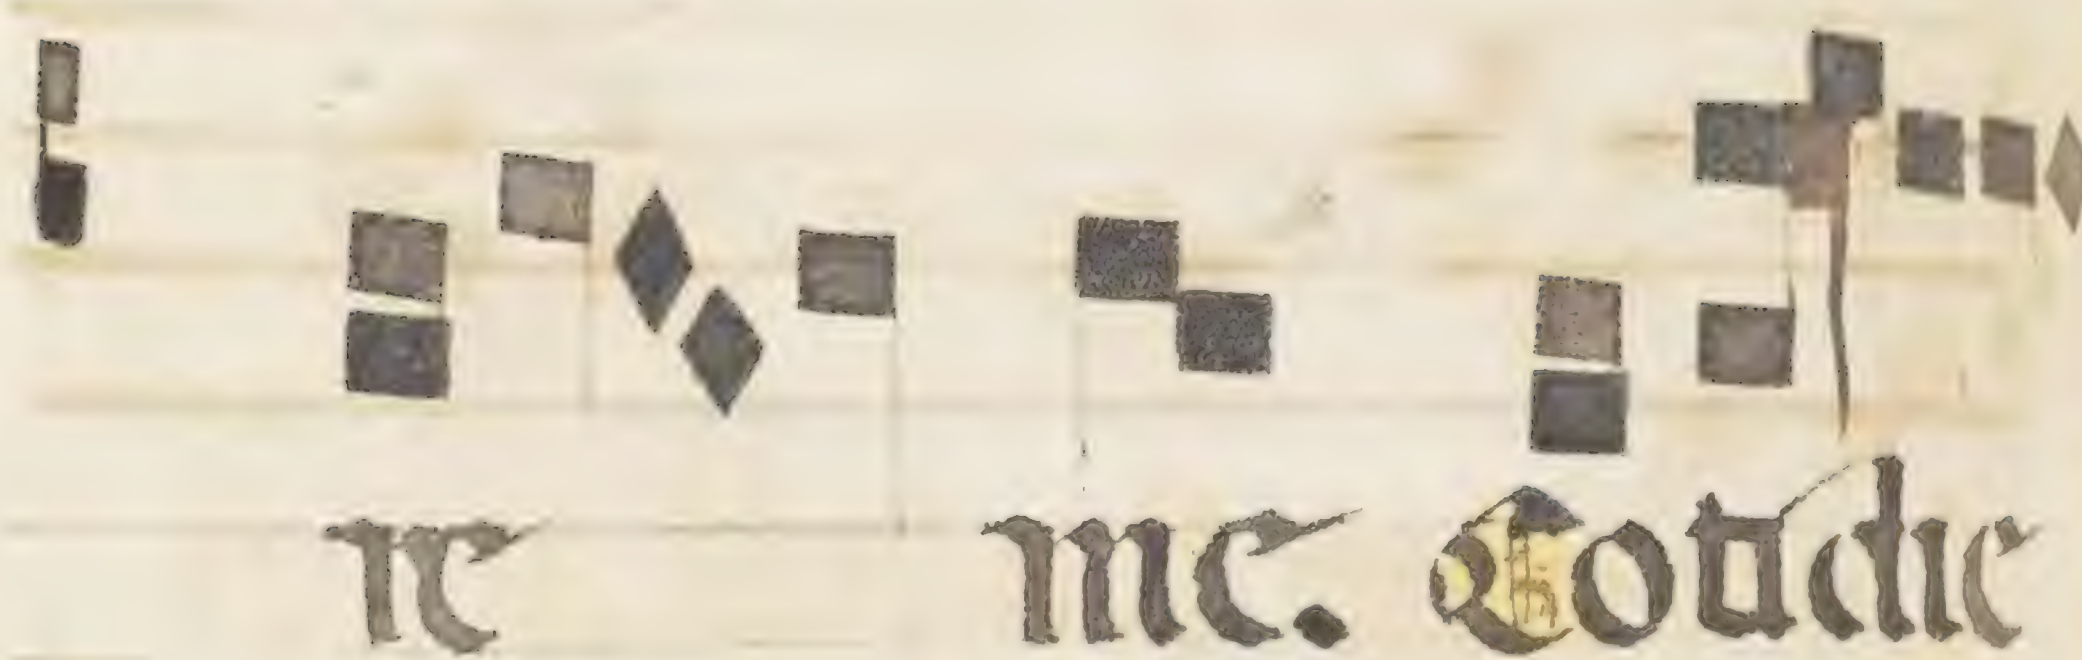 re me. Cotidie